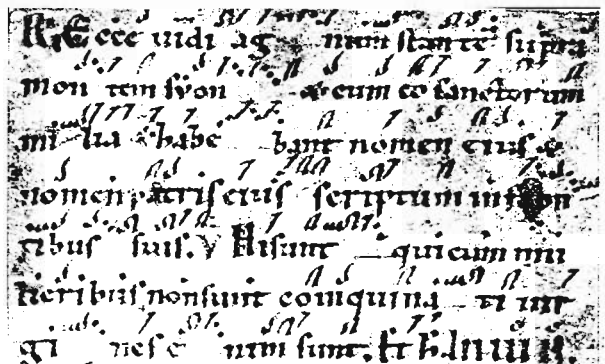 R. Ecce vidi ag num stante supra
mon tem syon & cum eo sanctorum
mi lia habe bant nomen eius &
nomen patris eius scriptum in fron
tibus suis. V Hi sunt qui cum mu
lieribus non sunt coinquina ti vir
gi nes e nim sunt.